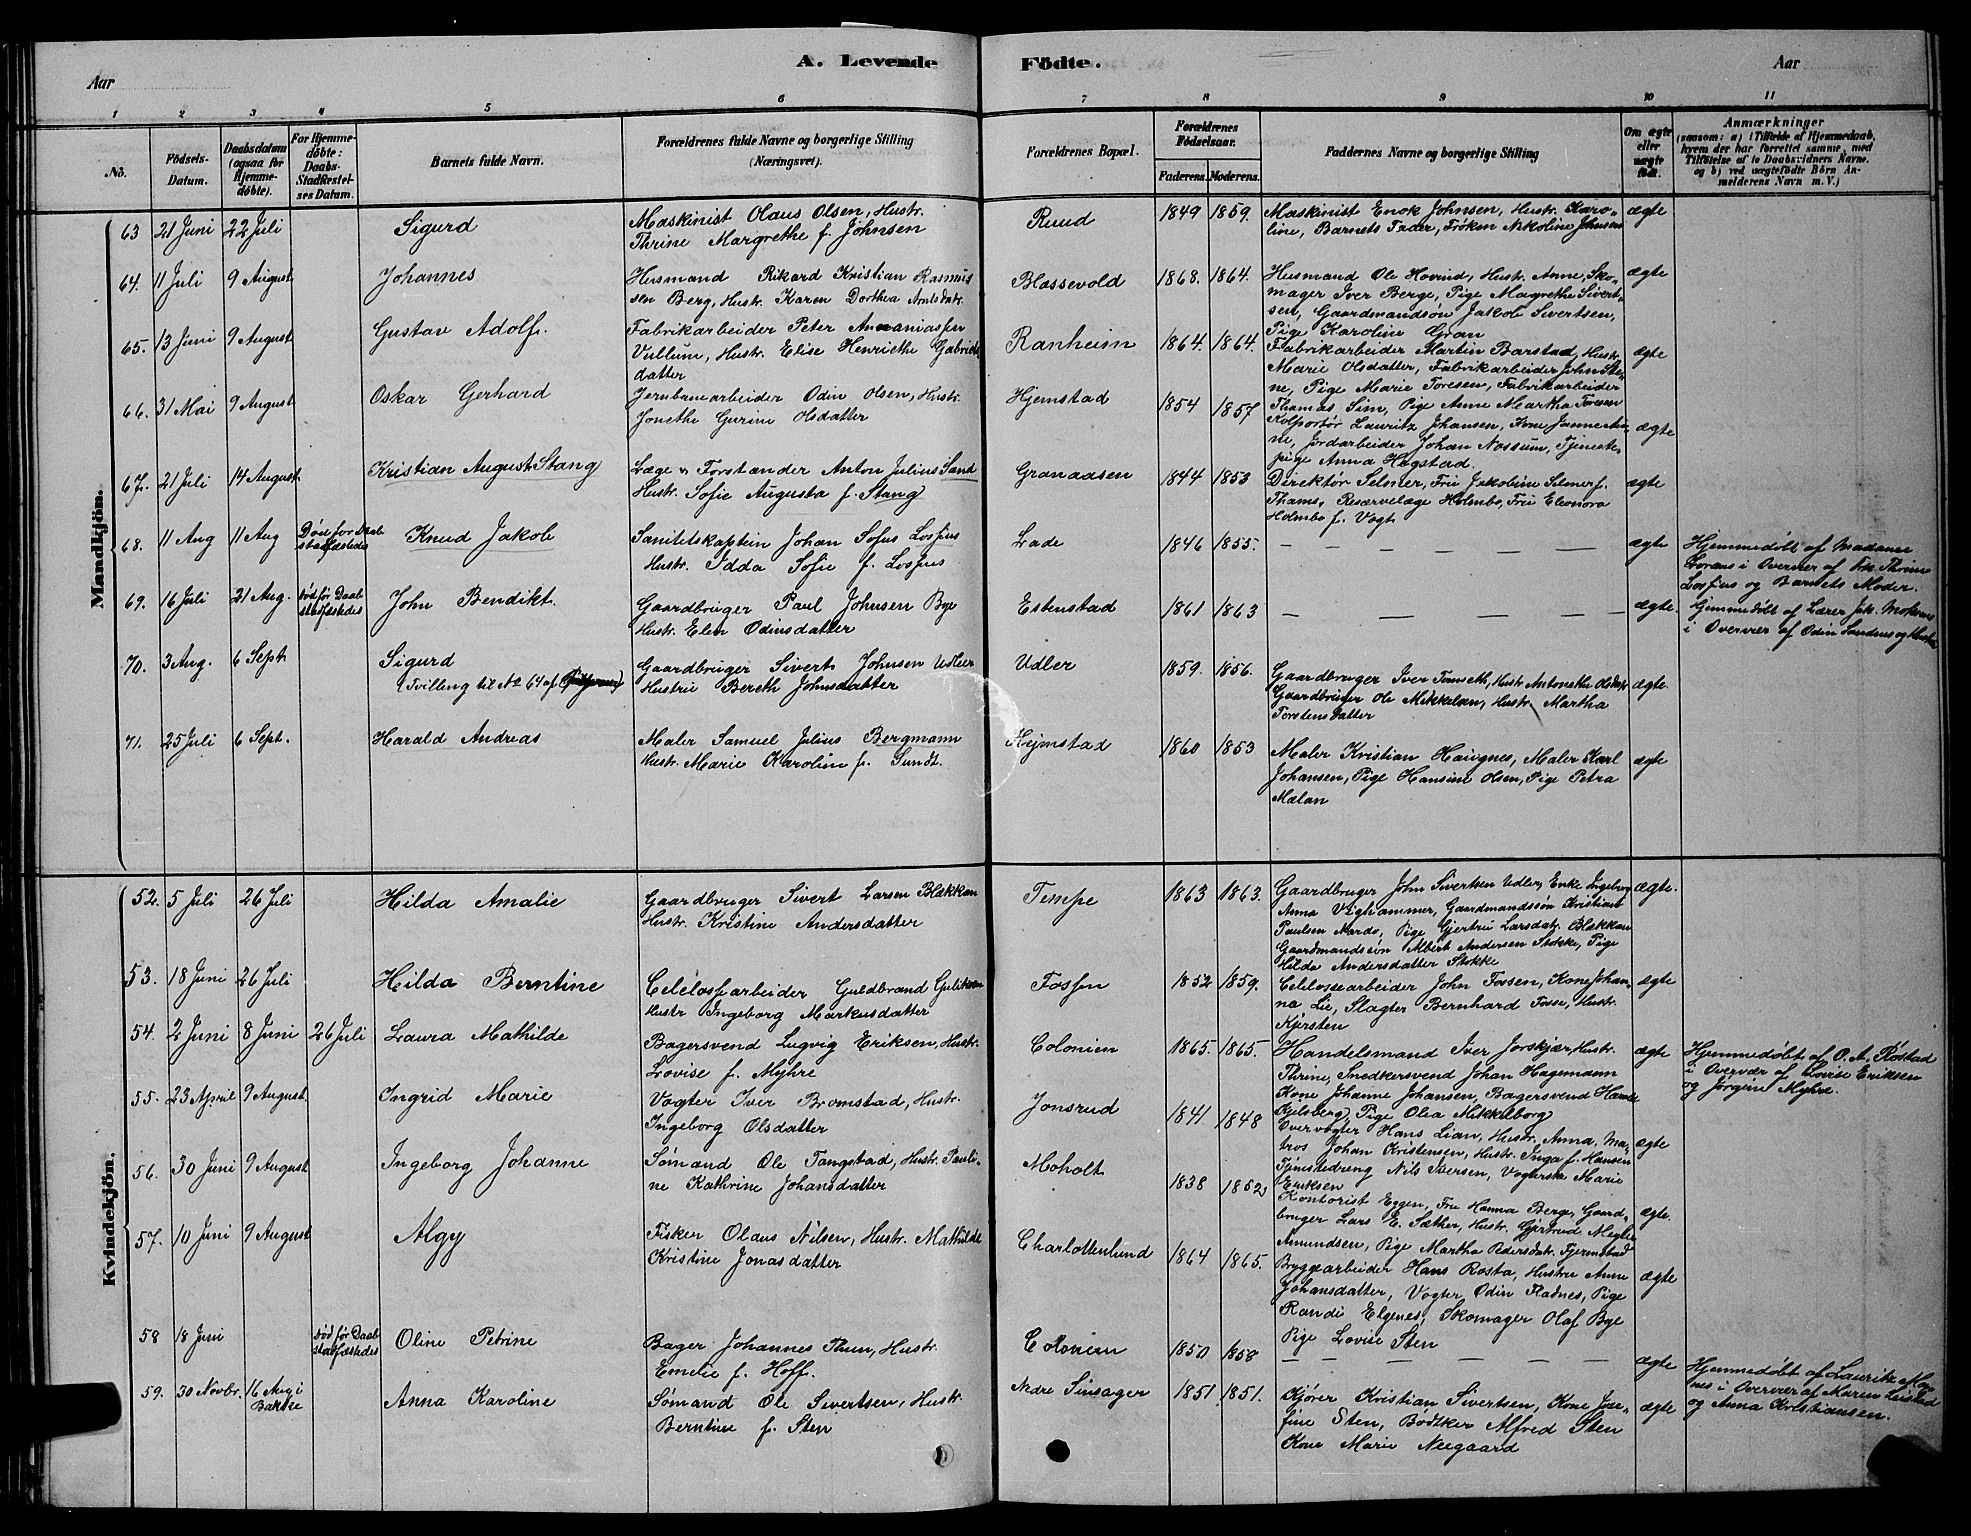 A. Levende Födte.
Aar
Aar
1 2 3 4 5 6 7 8 9 10 11
No.
Födsels-
Datum.
Daabsdatum
(ogsaa for
Hjemme-
döbte).
For Hjemme-
döbte:
Daabs-
Stadfæstel-
ses Datum.
Barnets fulde Navn.
Forældrenes fulde Navne og borgerlige Stilling
(Næringsvei).
Forældrenes Bopæl.
Forældrenes
Födselsaar.
Faderens. Moderens.
Faddernes Navne og borgerlige Stilling
Om ægte
eller
uægte
födt.
Anmærkninger
(saasom: a) i Tilfælde af Hjemmedaab,
hvem der har forrettet samme, med
Tilföielse af to Daabsvidners Navne.
og b) ved uægtefödte Börn An-
melderens Navn m. V.)
Mandkjön.
63 21 Juni 22 Juli Sigurd
Maskinist Olaus Olsen, Hustr.
Thrine Margrethe f. Johnsen
Ruud 1849 1859.
Maskinist Enok Johnsen, Hustr. Karo-
line, Barnets Fader, Frøken Nikoline Johnsen
ægte
64. 11 Juli 9 August Johannes
Husmand Rikard Kristian Rasmus
sen Berg, Hustr. Karen Dorthea Arntsdatr.
Blæssevold 1868. 1864.
Husmand Ole Hovind, Hustr. Anne, Sko-
mager Iver Berge, Pige Magrethe Sivert-
sen, Gaardmandsøn Jakob Sivertsen,
Pige Karoline Gran
ægte
65. 13 Juni 9 August Gustav Adolf.
Fabrikarbeider Peter Annaniassen
Vullum, Hustr. Elise Henriethe Gabriels
datter
Ranheim 1864. 1864.
Fabrikarbeider Martin Barstad, Hustr.
Marie Olsdatter, Fabrikarbeider John Ste-
ne, Pige Marie Toresen, Fabrikarbeider
Thomas Sim, Pige Anne Martha Toresen
ægte
66. 31 Mai 9 August Oskar Gerhard
Jernbanearbeider Odin Olsen, Hustr.
Jonethe Gurine Olsdatter
Hjemstad 1854 1857
Kolportør Lauritz Johansen, Kone Jannesti-
ne, Jordarbeider Johan Nossum, Tjeneste-
pige Anna Hogstad.
ægte
67. 21 Juli 14 August Kristian August Stang
Læge & Forstander Anton Julius Sand
Hustr. Sofie Augusta f. Stang
Granaasen 1844 1853
Direktør Selmer, Fru Jakobine Selmer f.
Thams, Reservelæge Holmbo, Fru Eleonora
Holmbo f. Vogt.
ægte
68. 11 Aug 11 Aug Død før Daab
stadfæstedes
Knud Jakob
Sanitetskaptein Johan Sofus Lossius
Hustr. Idda Sofie f. Lossius
Lade 1846 1855. — — — — — — ægte
Hjemmedøbt af Madame
Lorens i Overvær af Frk. Thrine
Lossius og Barnets Moder.
69. 16 Juli 21 Aug. død før Daab
stadfæstedes
John Bendikt.
Gaardbruger Paul Johnsen Bye
Hustr. Elen Odinsdatter
Estenstad 1861 1863 — — — — — — ægte.
Hjemmedøbt af Lærer Jak. Moksnes
i Overvær af Odin Sandnes og Hustru
70. 3 Aug. 6 Sept. Sigurd
(Tvilling til No 64 af
Gaardbruger Sivert Johnsen Udler
Hustru Bereth Johnsdatter
Udler 1859. 1856.
Gaardbruger Iver Tomseth, Hustr. Antonethe Olsdatr.
Gaardbruger Ole Mikkelsen, Hustr. Martha
Torstensdatter
ægte.
71. 25 Juli 6 Sept. Harald Andreas
Maler Samuel Julius Bergmann
Hustr. Marie Karoline f. Gundt.
Hejmstad 1860 1853
Maler Kristian Haugnes, Maler Karl
Johansen, Pige Hansine Olsen, Pige Petra
Mælan
ægte
Kvindekjön.
52. 5 Juli 26 Juli Hilda Amalie
Gaardbruger Sivert Larsen Blækkan
Hustr. Kristine Andersdatter
Tempe 1863 1863.
Gaardbruger John Sivertsen Udler, Enke Ingeborg
Anna Vighammer, Gaardmandssøn Kristian
Paulsen Nardo, Pige Gjertru Larsdatr. Blækkan
Gaardmandssøn Albert Andersen Stokke, Pige
Hilda Andersdatter Stokke
ægte.
53. 18 Juni 26 Juli Hilda Berntine
Celelosearbeider Guldbrand Guliksen
Hustr Ingeborg Markusdatter
Fossen 1852 1859.
Celelosearbeider John Fossen, Kone Johan-
na Lie, Slagter Bernhard Fosse, Hustr.
Kjersten
ægte
54. 2 Juni 8 Juni 26 Juli Laura Mathilde
Bagersvend Lugvig Eriksen, Hustr.
Lovise f. Myhre
Colonien 1865. 1865.
Handelsmand Iver Jorskjær, Hustr.
Thrine, Snedkersvend Johan Hagemoem
Kone Johanne Johansen, Bagersvend Harald
Kjelsberg, Pige Olea Mikkelborg
ægte
Hjemmedøbt af O. A. Røstad
i Overvær af Lovise Eriksen
og Jørgine Myhre.
55. 23 April 9 August Ingrid Marie
Vogter Iver Bromstad, Hustr.
Ingeborg Olsdatter
Jonsrud 1841. 1848
Overvogter Hans Lian, Hustr. Anna, Ma-
tros Johan Kristensen, Hustr. Inga f. Hansen
Tjenstedreng Nils Iversen, Vogterske Marie
Eriksen
ægte
56. 30 Juni 9 August Ingeborg Johanne
Sømand Ole Tangstad, Hustr. Pauli-
ne Kathrine Johansdatter
Moholt 1838 1852
Kontorist Eggen, Fru Hanna Berg, Gaard-
bruger Lars E. Sæther, Hustr. Gjertrud, Megler
Amundsen, Pige Martha Pedersdatr. Fjermstad
ægte.
57. 10 Juni 9 August Algy
Fisker Olaus Nilsen, Hustr. Mathilde
Kristine Jonasdatter
Charlottenlund 1864 1865.
Bryggearbeider Hans Rosta, Hustru Anne
Johansdatter, Vogter Odin Fladnes, Pige
Randi Elgenes, Skomager Olaf Bye
Pige Lovise Sten
ægte
58 18 Juni Død før Daab
stadfæstedes
Oline Petrine
Bager Johannes Thun, Hustr.
Emelie f. Hoff.
Colonien 1850 1858 — — — — — — ægte
Hjemmedøbt af Lauritz Mo-
nes i Overvær af Maren Leistad
og Anna Kristiansen.
59. 30 Novbr. 16 Aug i
Bakke
Anna Karoline
Sømand Ole Sivertsen, Hustr.
Berntine f. Sten
Nedre Sinsager 1851. 1851.
Kjører Kristian Sivertsen, Kone Jose-
fine Sten, Bødker Alfred Sten
Kone Marie Neegaard
ægte